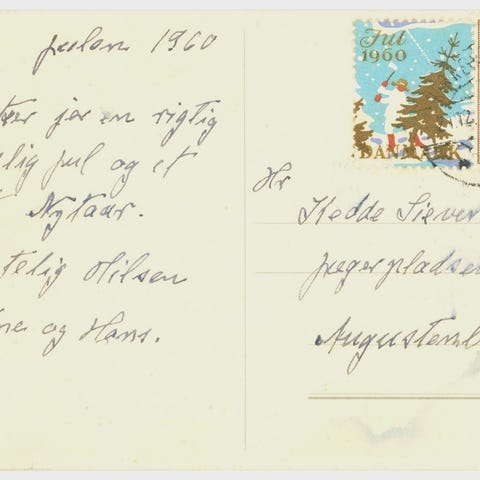 Julen 1960
jer en rigtig
lig jul og et
Nytaar.
telig Hilsen
og Hans.
Jul
1960
DANMARK
Hr
Hedde Siever
Jægerpladsen
Augustenb